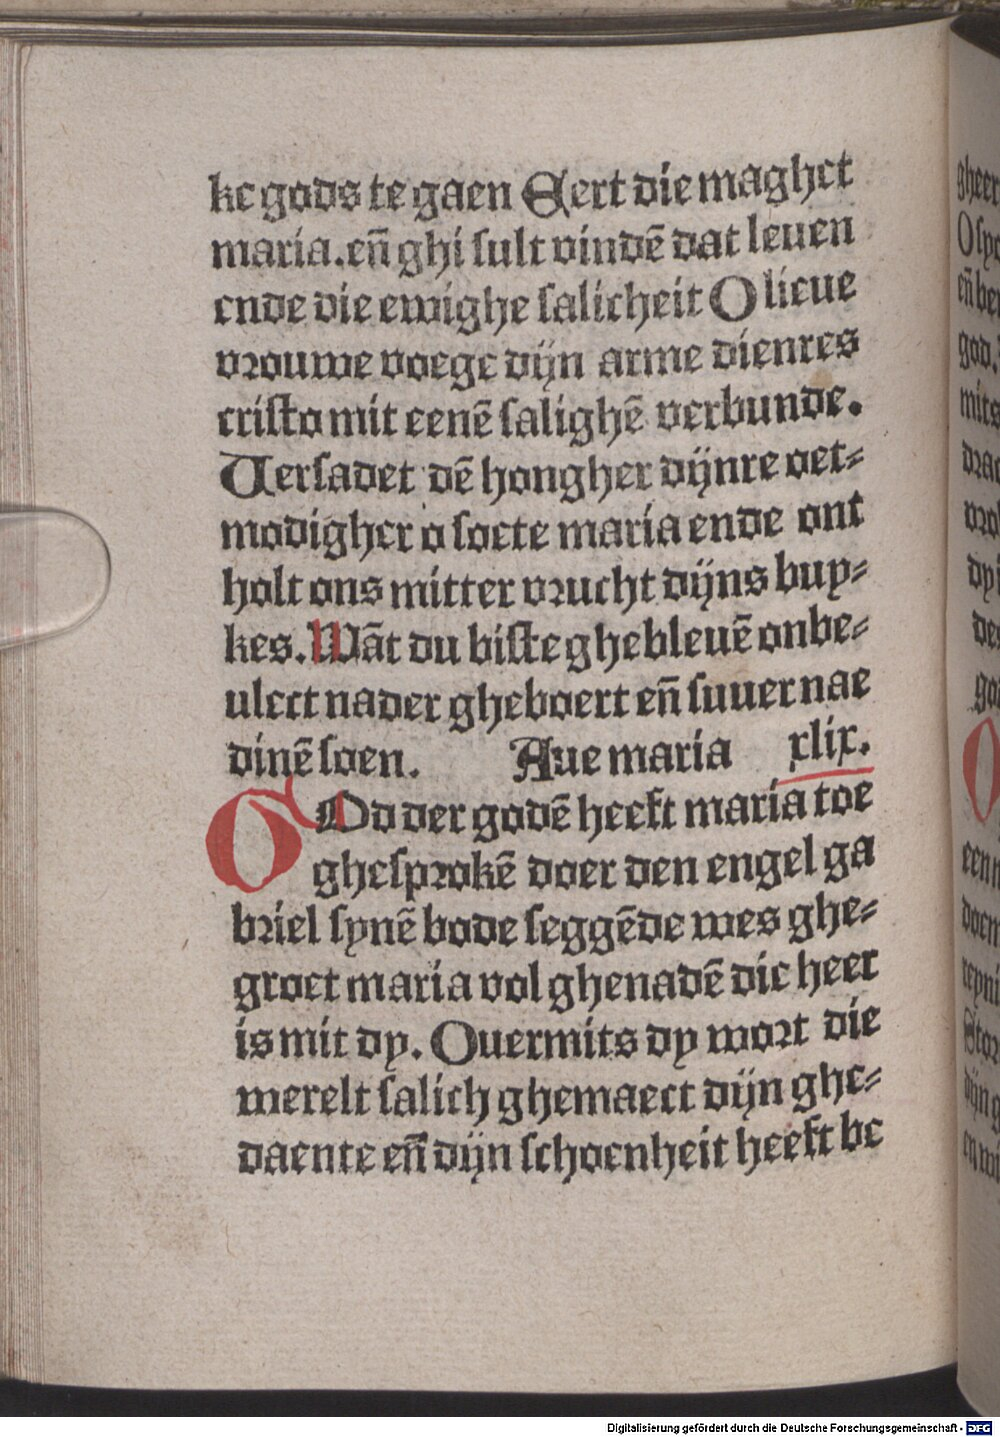 ke gods te gaen Eert die maghet
maria. en̄ ghi sult vindē dat leuen
ende die ewighe salicheit O lieue
vrouwe voege dijn arme dienres
cristo mit eenē salighē verbunde.
Uersadet dē hongher dijnre oet⸗
modigher o soete maria ende ont
holt ons mitter vrucht dijns buy⸗
kes. Wāt du biste ghebleuē onbe⸗
ulect nader gheboert en̄ suuer nae
dinē soen. Aue maria xlix.
God der godē heeft maria toe
ghesprokē doer den engel ga
briel synē bode seggēde wes ghe⸗
groet maria vol ghenadē die heer
is mit dy. Ouermits dy wort die
werelt salich ghemaect dijn ghe⸗
daente en̄ dijn schoenheit heeft be
gheer
O
en̄
god.
mits
een
Digitalisierung gefördert durch die Deutsche Forschungsgemeinschaft - DFG